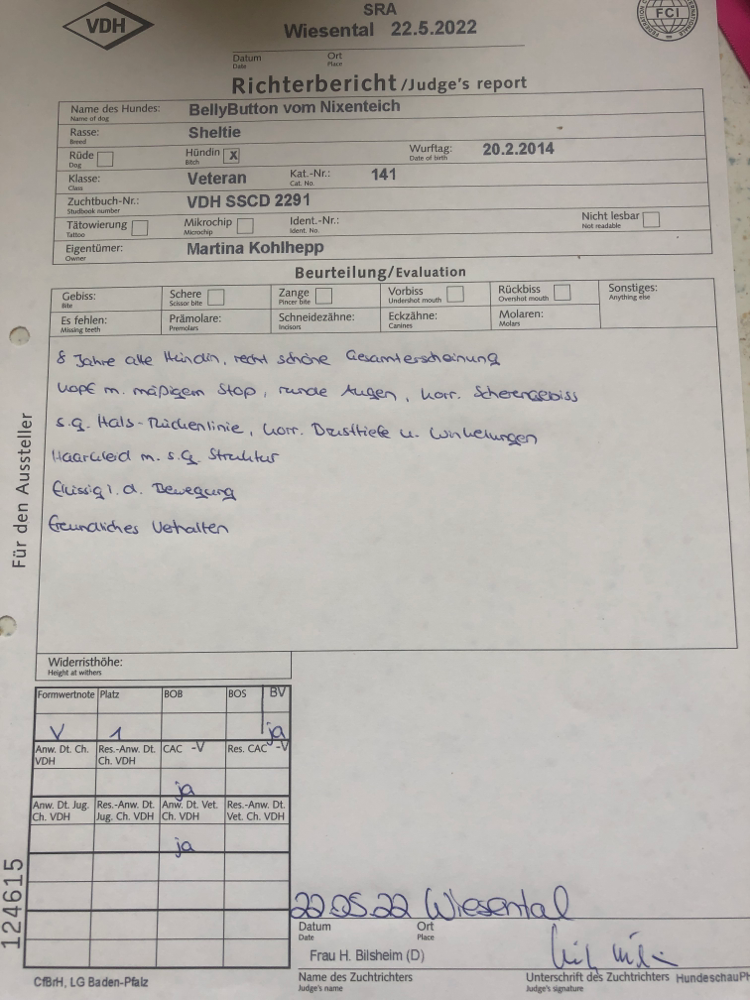 VDH
SRA
Wiesental 22.5.2022
FCI
Datum Ort
Date Place
Richterbericht/Judge's report
Name des Hundes: BellyButton vom Nixenteich
Name of dog
Rasse: Sheltie
Breed
Rüde Hündin X Wurftag: 20.2.2014
Dog Bitch Date of birth
Klasse: Veteran Kat.-Nr.: 141
Class Cat. No.
Zuchtbuch-Nr.: VDH SSCD 2291
Studbook number
Tätowierung Mikrochip Ident.-Nr.: Nicht lesbar
Tattoo Microchip Ident. No. Not readable
Eigentümer: Martina Kohlhepp
Owner
Beurteilung/Evaluation
Gebiss: Schere Zange Vorbiss Rückbiss Sonstiges:
Bite Scissor bite Pincer bite Undershot mouth Overshot mouth Anything else
Es fehlen: Prämolare: Schneidezähne: Eckzähne: Molaren:
Missing teeth Premolars Incisors Canines Molars
8 Jahre alte Hündin, recht schöne Gesamterscheinung
Kopf m. mäßigem Stop, runde Augen, korr. Scherengebiss
s.g. Hals-Rückenlinie, korr. Brusttiefe u. Winkelungen
Haarkleid m. s.g. Struktur
flüssig i. d. Bewegung
freundliches Verhalten
Für den Aussteller
Widerristhöhe:
Height at withers
Formwertnote Platz BOB BOS BV
V 1 ja
Anw. Dt. Ch. VDH Res.-Anw. Dt. Ch. VDH CAC -V Res. CAC -V
ja
Anw. Dt. Jug. Ch. VDH Res.-Anw. Dt. Jug. Ch. VDH Anw. Dt. Vet. Ch. VDH Res.-Anw. Dt. Vet. Ch. VDH
ja
124615
22.05.22 Wiesental
Datum Ort
Date Place
Frau H. Bilsheim (D)
Name des Zuchtrichters Unterschrift des Zuchtrichters
Judge's name Judge's signature
CfBrH, LG Baden-Pfalz
HundeschauPh